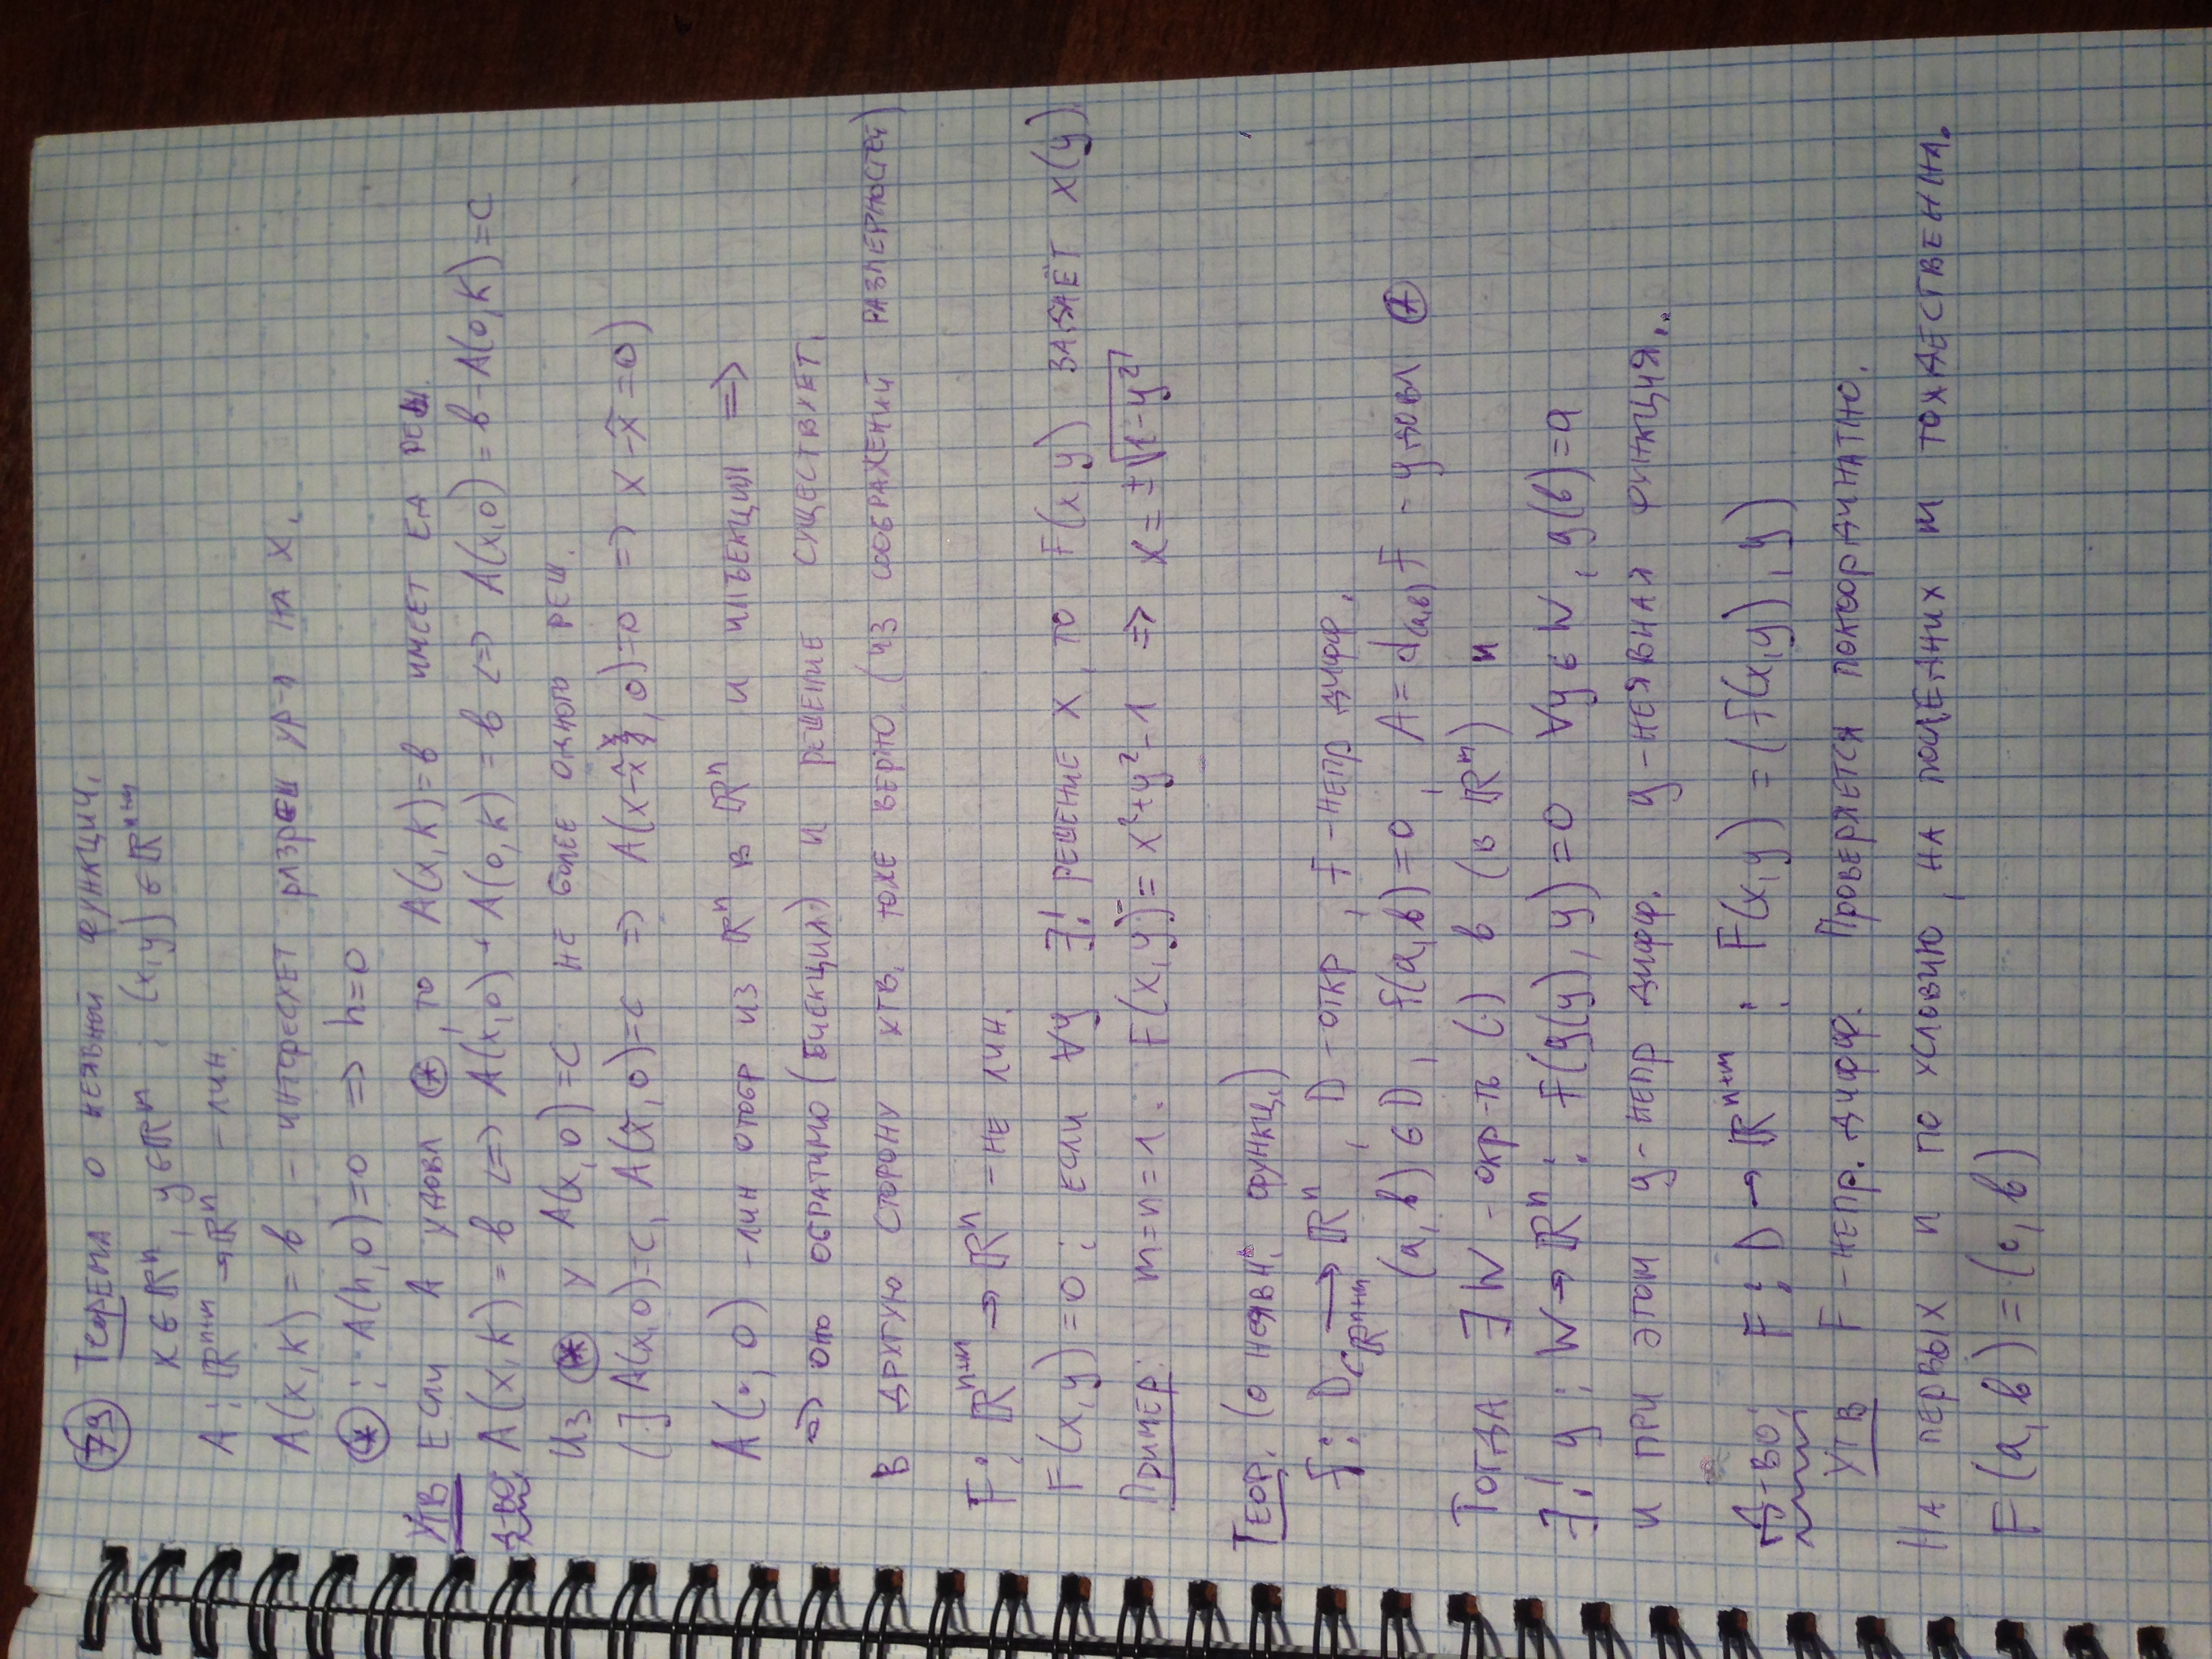 79 Теорема о неявной функции.
x∈ℝⁿ, y∈ℝᵐ : (x,y)∈ℝⁿ⁺ᵐ
A: ℝⁿ⁺ᵐ → ℝⁿ – лин.
A(x,k) = b – интересует разреш ур-я на x.
⊛: A(h,0)=0 => h=0
Утв Если A удовл ⊛, то A(x,k)=b имеет ед реш.
Д-во: A(x,k) = b <=> A(x,0) + A(0,k) = b <=> A(x,0) = b - A(0,k) = c
Из ⊛ у A(x,0)=c не более одного реш.
(] A(x,0)=c, A(x̃,0)=c => A(x-x̃,0)=0 => x-x̃=0)
A(·,0) – лин отобр из ℝⁿ в ℝⁿ и инъекция =>
=> оно обратимо (биекция) и решение существует.
В другую сторону утв. тоже верно (из соображений размерностей)
F: ℝⁿ⁺ᵐ → ℝⁿ – не лин.
F(x,y)=0 : если ∀y ∃! решение x, то F(x,y) задаёт x(y).
Пример: m=n=1. F(x,y) = x²+y²-1 => x=±√(1-y²)
Теор. (о неявн. функц.)
f: D⊂ℝⁿ⁺ᵐ → ℝⁿ, D – откр, f – непр дифф.
(a,b)∈D, f(a,b)=0, A = d₍ₐ,b₎f – удовл ⊛
Тогда ∃ W – окр-ть (·) b (в ℝᵐ) и
∃! g: W→ℝⁿ: f(g(y),y)=0 ∀y∈W, g(b)=a
и при этом g – непр дифф. g – неявная функция..
Д-во: F: D→ℝⁿ⁺ᵐ : F(x,y) = (f(x,y),y)
Утв F – непр. дифф. Проверяется покоординатно.
На первых n по условию, на последних m тождественна.
F(a,b) = (0,b)